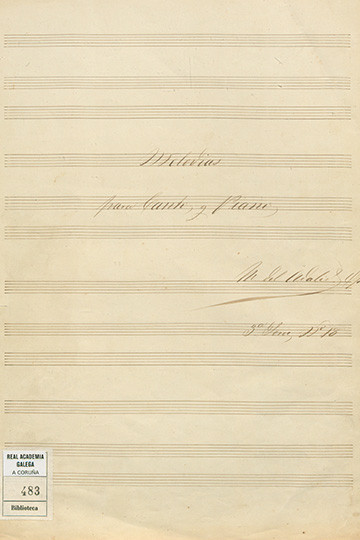 Melodias
para Canto y Piano,
M. del Adalid y
3ª Serie, Nº 15
REAL ACADEMIA
GALEGA
A CORUÑA
483
Biblioteca